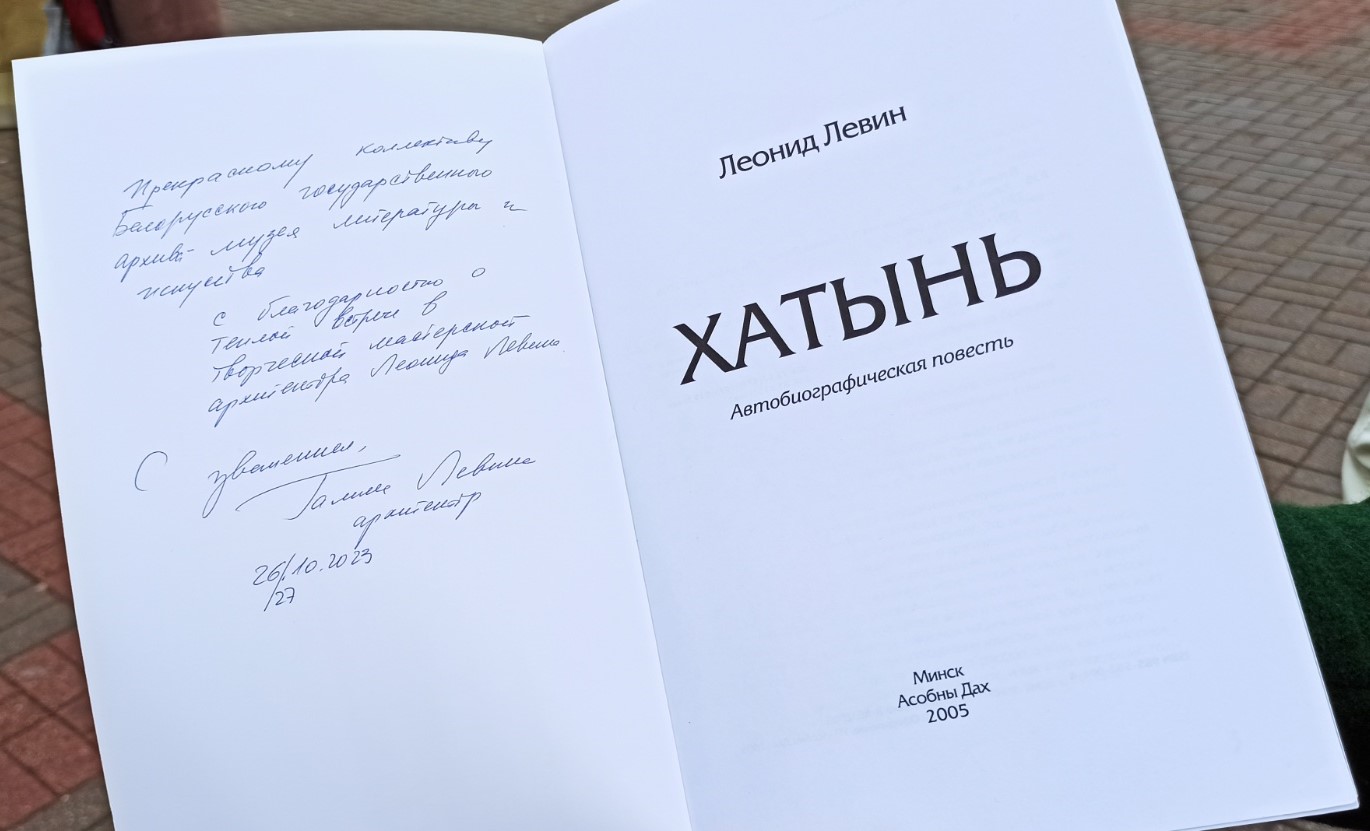 Прекрасному коллективу
Белорусского государственного
архива-музея литературы и
искусства
с благодарностью о
теплой встрече в
творческой мастерской
архитектора Леонида Левина
С уважением,
Галина Левина
архитектор
26/.10.2023
/27
Леонид Левин
ХАТЫНЬ
Автобиографическая повесть
Минск
Асобны Дах
2005